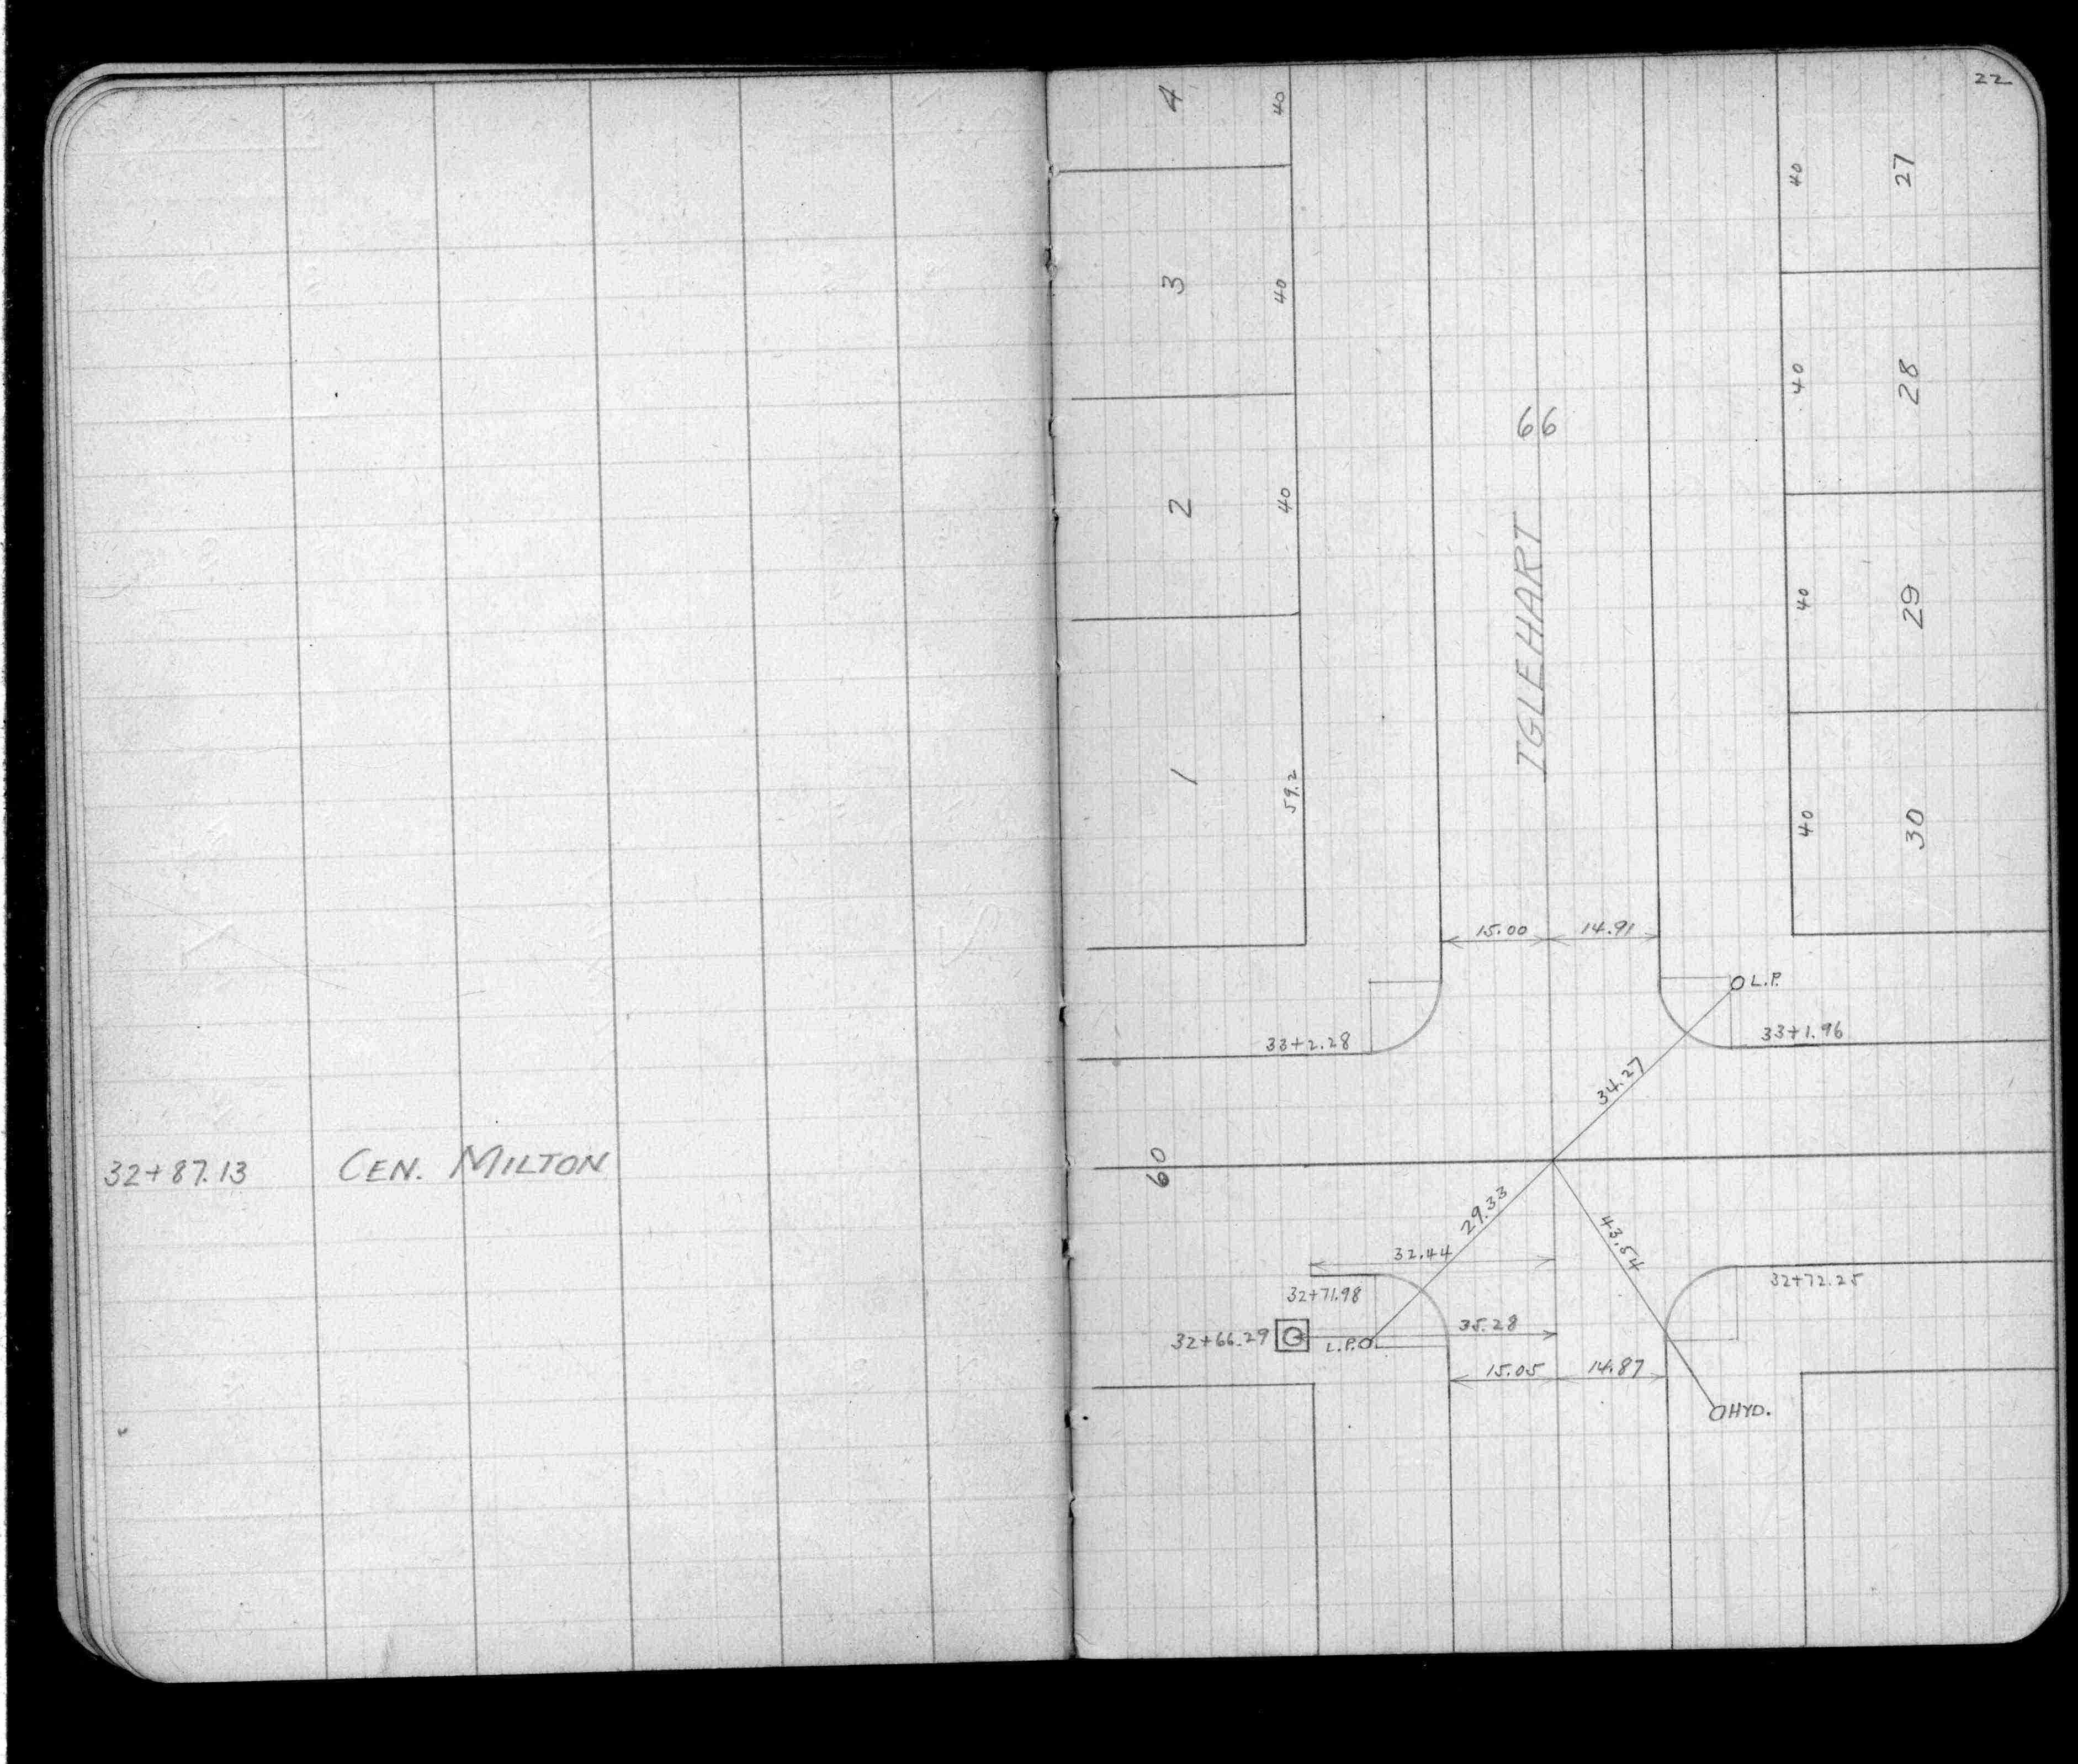 32+87.13 CEN. MILTON
22
4 40
27 40
3 40
28 40
66
2 40
IGLEHART
29 40
1 59.2
30 40
15.00 14.91
L.P.
33+2.28 33+1.96
34.27
60
29.33 43.54
32.44
32+71.98 32+72.25
32+66.29 L.P. 35.28
15.05 14.87
HYD.